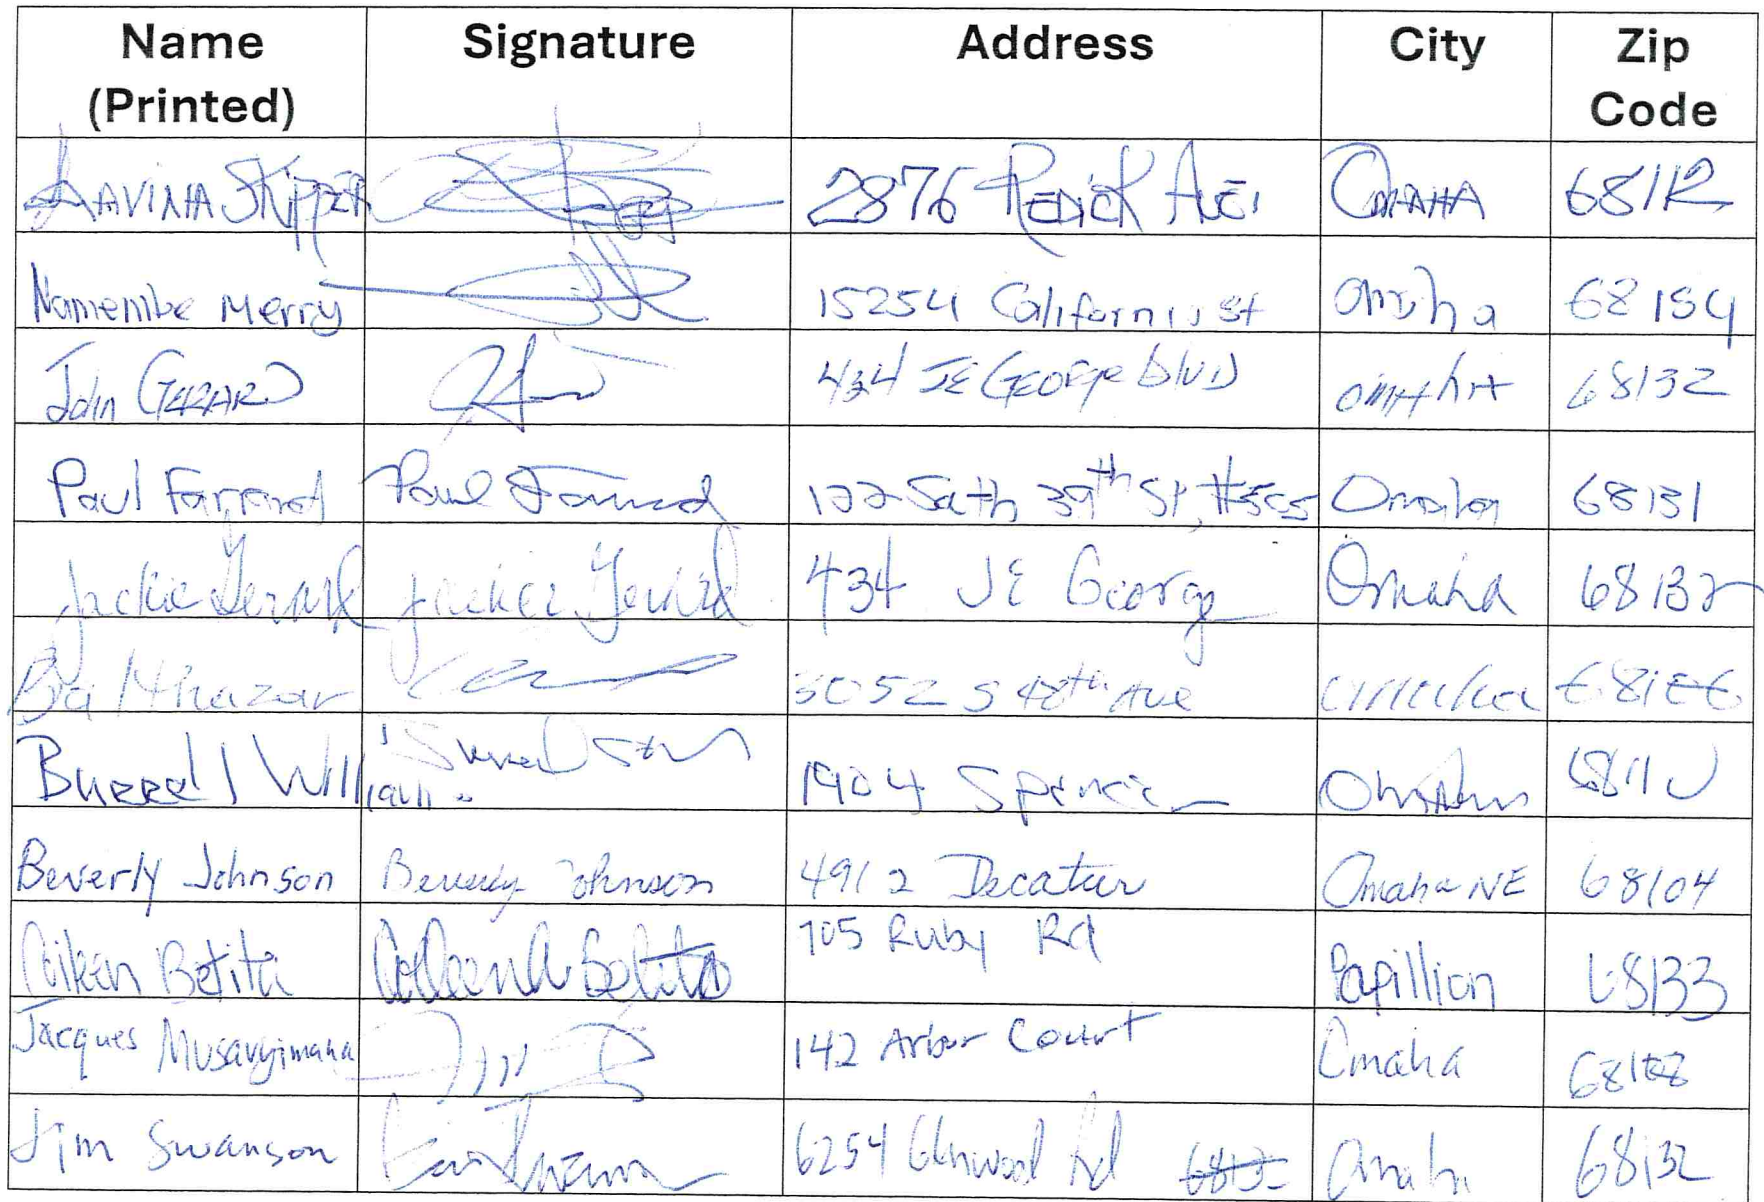 Name (Printed) Signature Address City Zip Code
LAVINA SKIPPER 2876 REDICK AVE. OMAHA 68112
Namembe Merry 15254 California st Omaha 68154
John GERARD 434 JE GEORGE blvd OMAHA 68132
Paul Farrand Paul Farrand 122 South 39th St, #505 Omaha 68131
Jackie Gerard Jackie Gerard 434 JE George Omaha 68132
Balthazar 3052 S 48th Ave Omaha 68106
Burrell Williams 1904 Spencer Omaha 68110
Beverly Johnson Beverly Johnson 4912 Decatur Omaha NE 68104
Betita Betita 705 Ruby Rd Papillion 68133
Jacques Musavyimana 142 Arbor Court Omaha
Jim Swanson Jim Swanson 6254 Glenwood Rd Omaha 68132